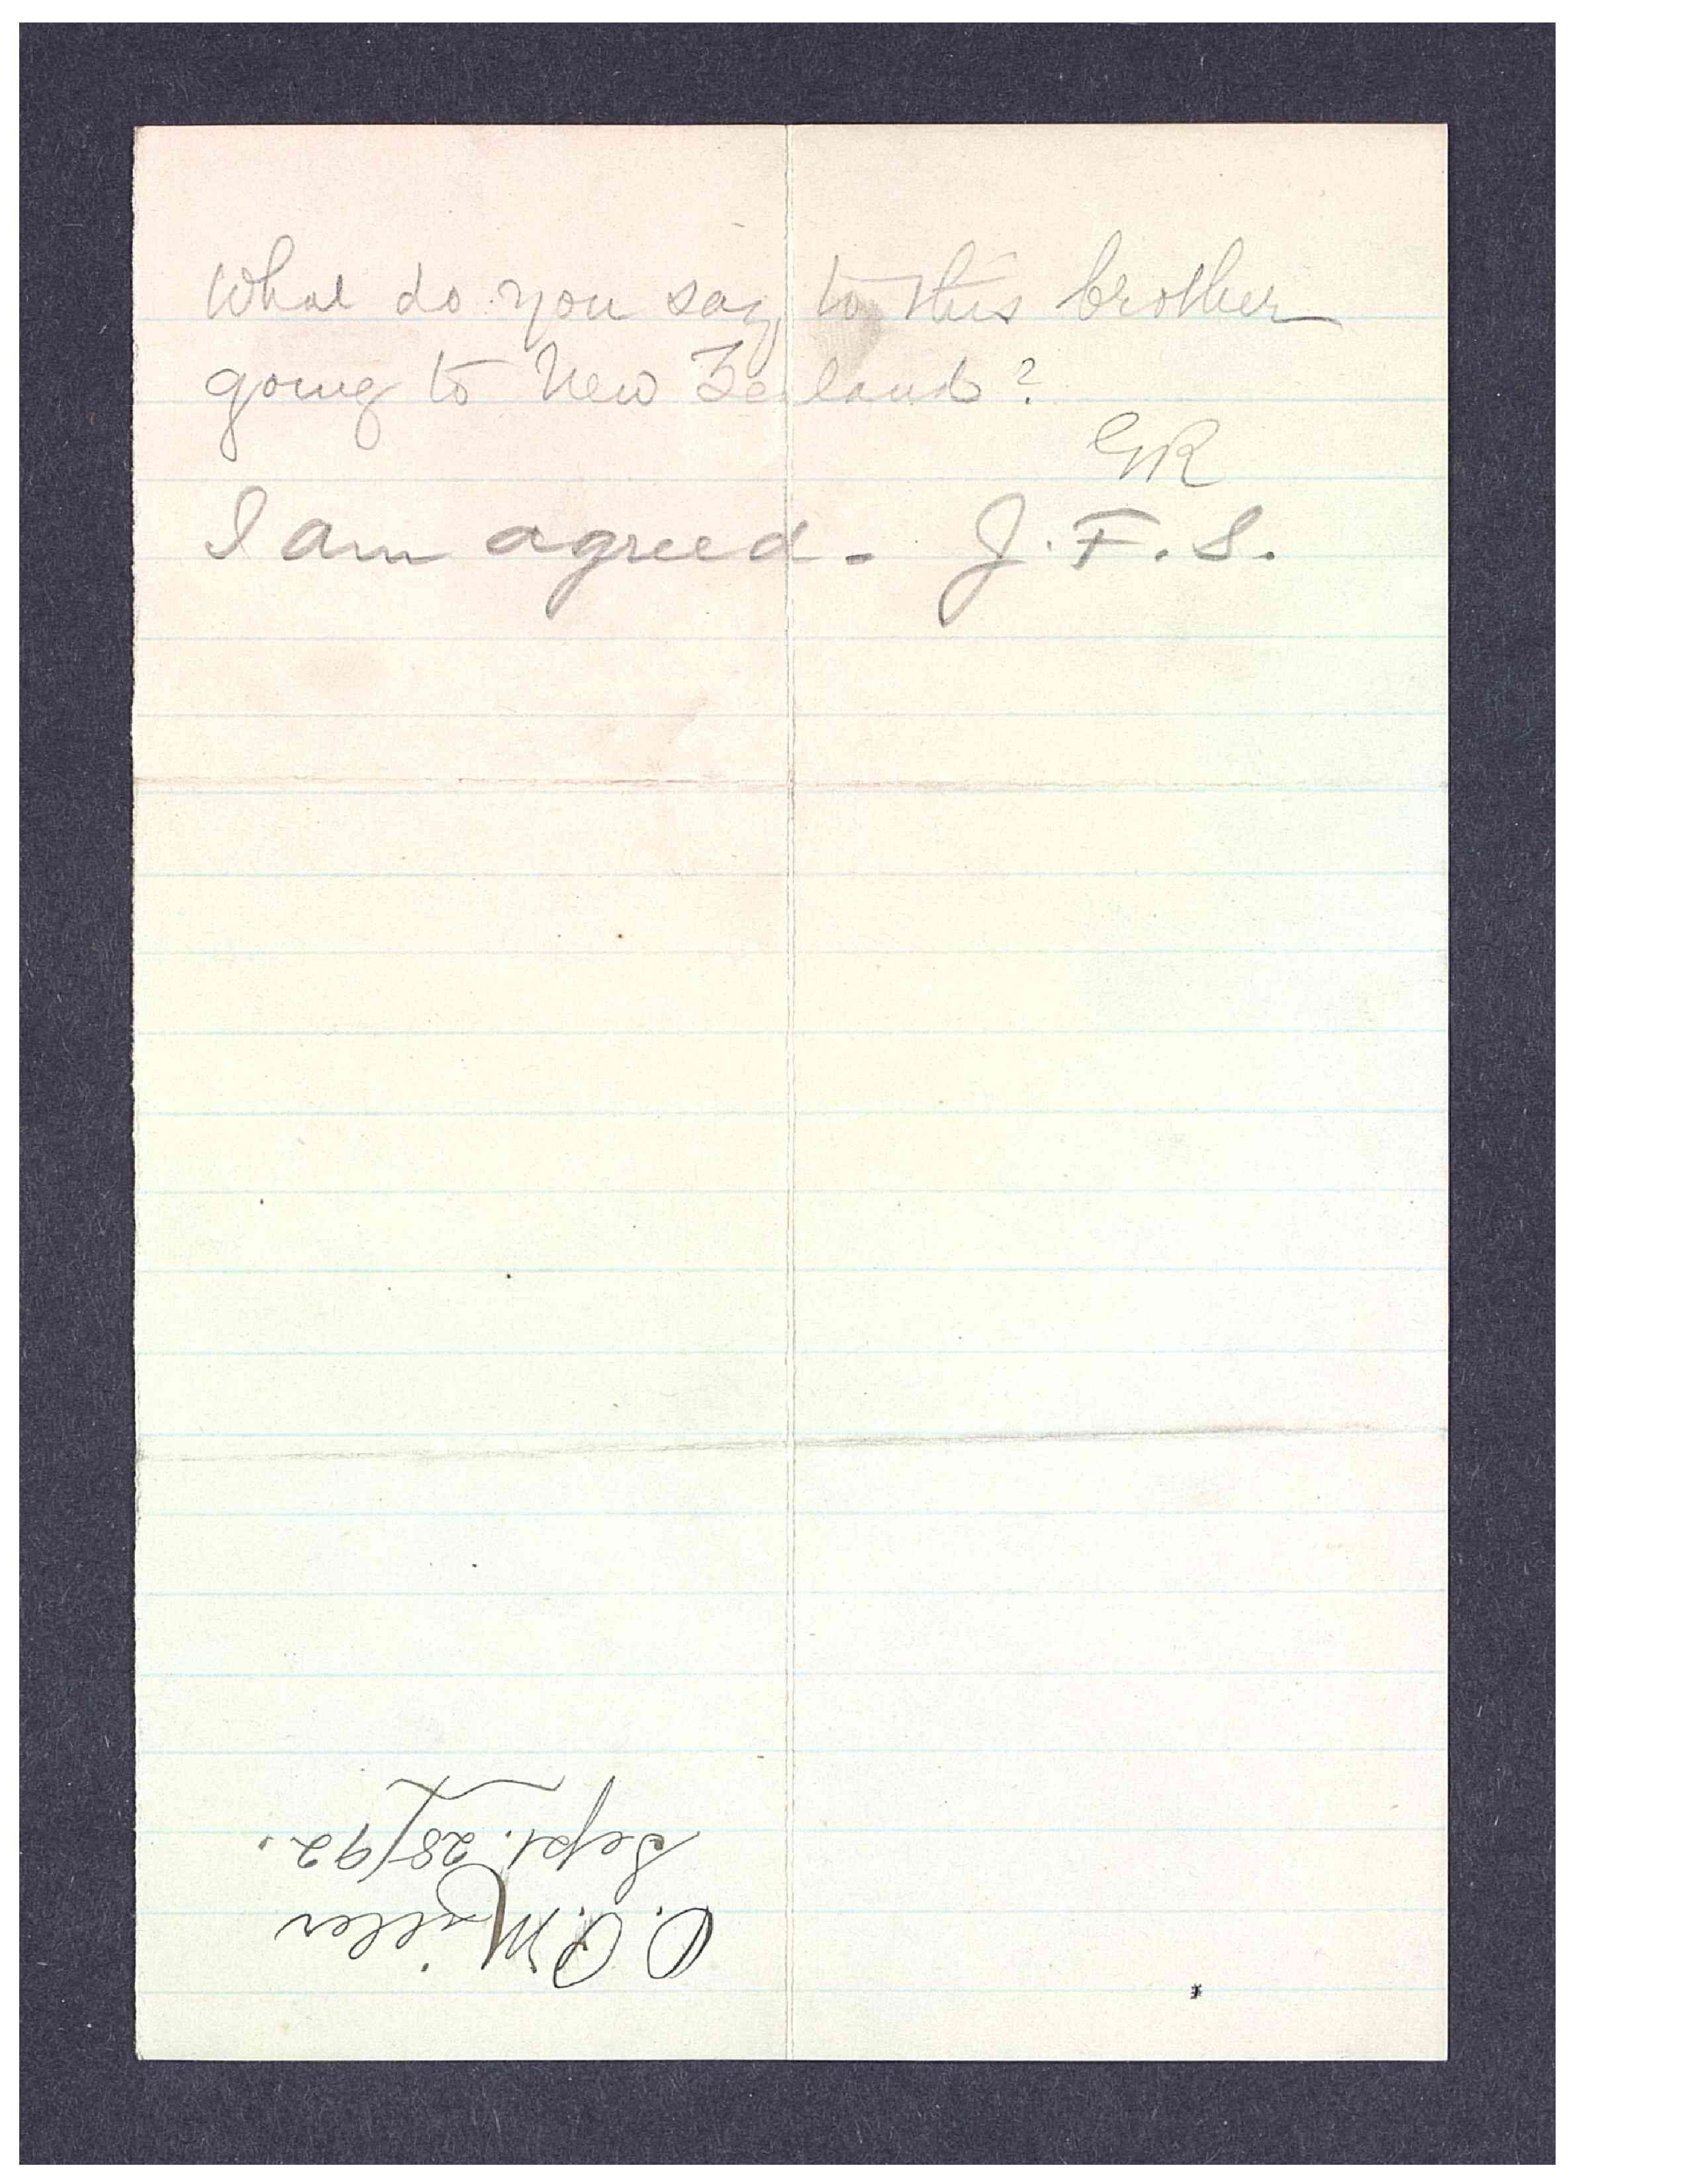 What do you say to this brother
going to New Zealand?
GR
I am agreed. J. F. S.
O. P. Miller
Sept. 28/92.